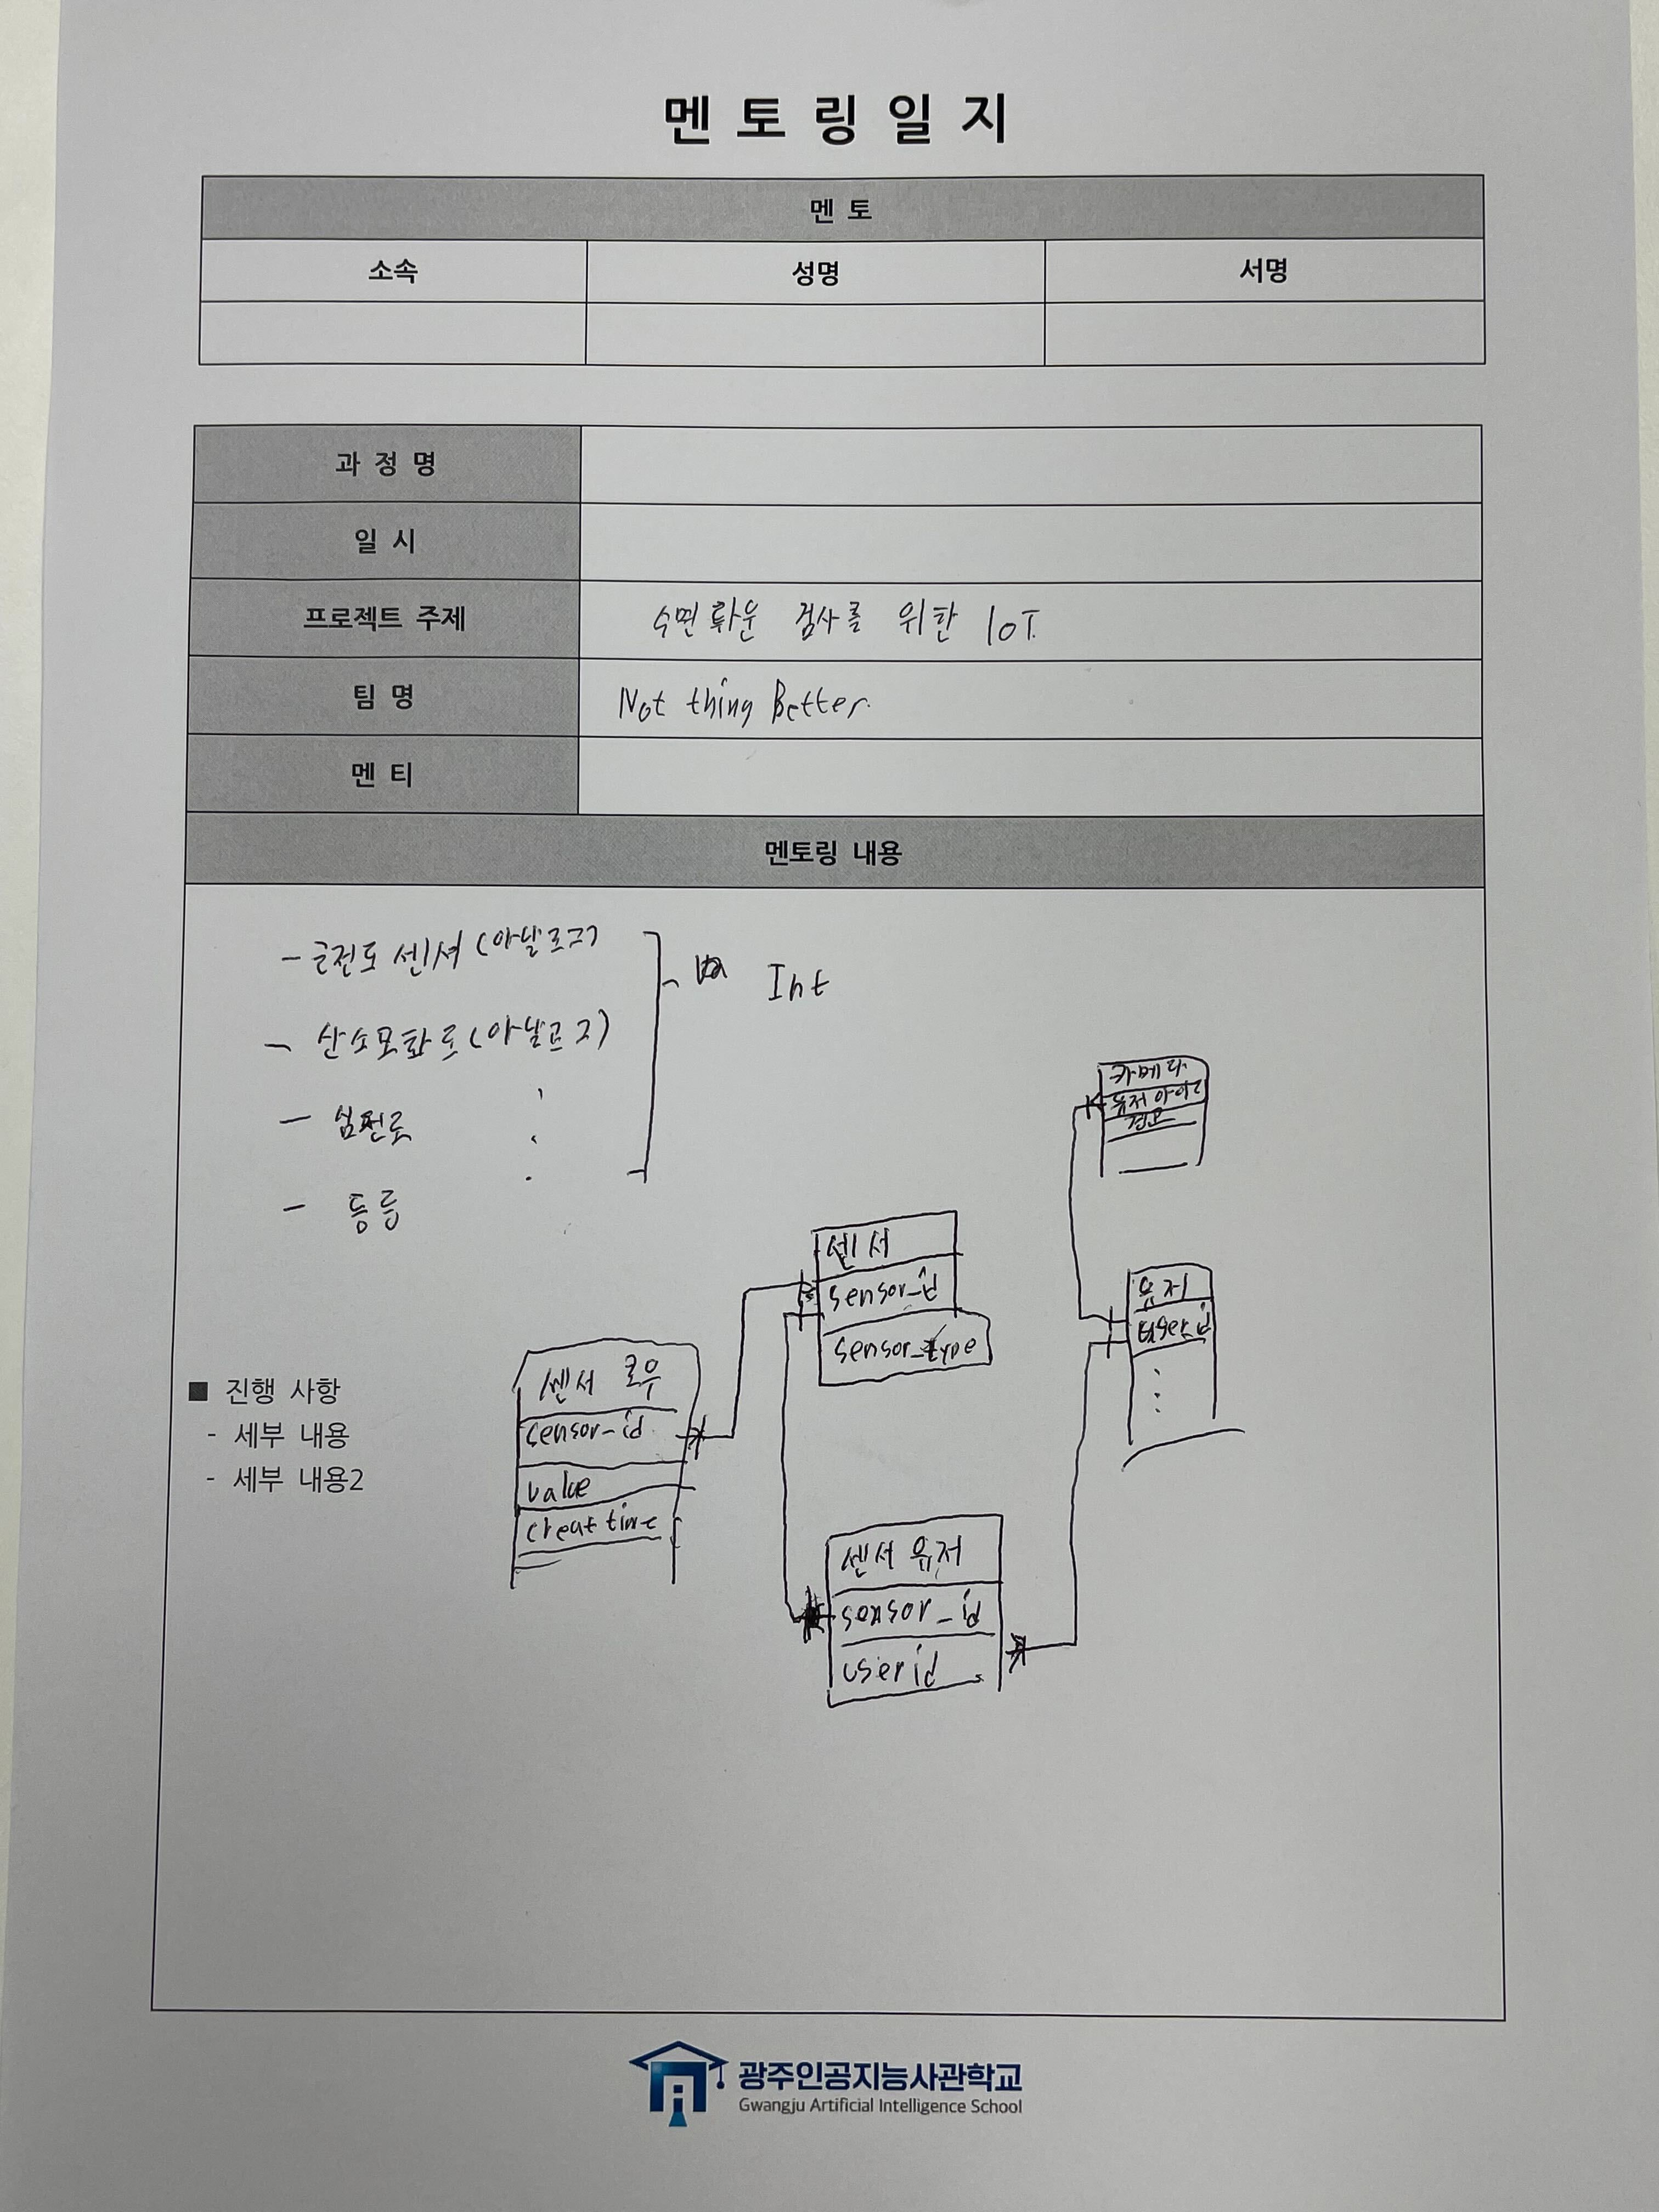 멘토링일지
멘 토
소속 성명 서명
과 정 명
일 시
프로젝트 주제 검사를 위한 IoT
팀 명 Not thing Better.
멘 티
멘토링 내용
- 근전도 센서 (아날로그)
- 산소포화도 (아날로그)
- 심전도
- 등등
Int
카메라
유저 아이디
경로
센서
sensor_id
sensor_type
유저
user_id
센서 로우
sensor-id
value
creat time
센서 유저
sensor-id
user id
■ 진행 사항
- 세부 내용
- 세부 내용2
광주인공지능사관학교
Gwangju Artificial Intelligence School